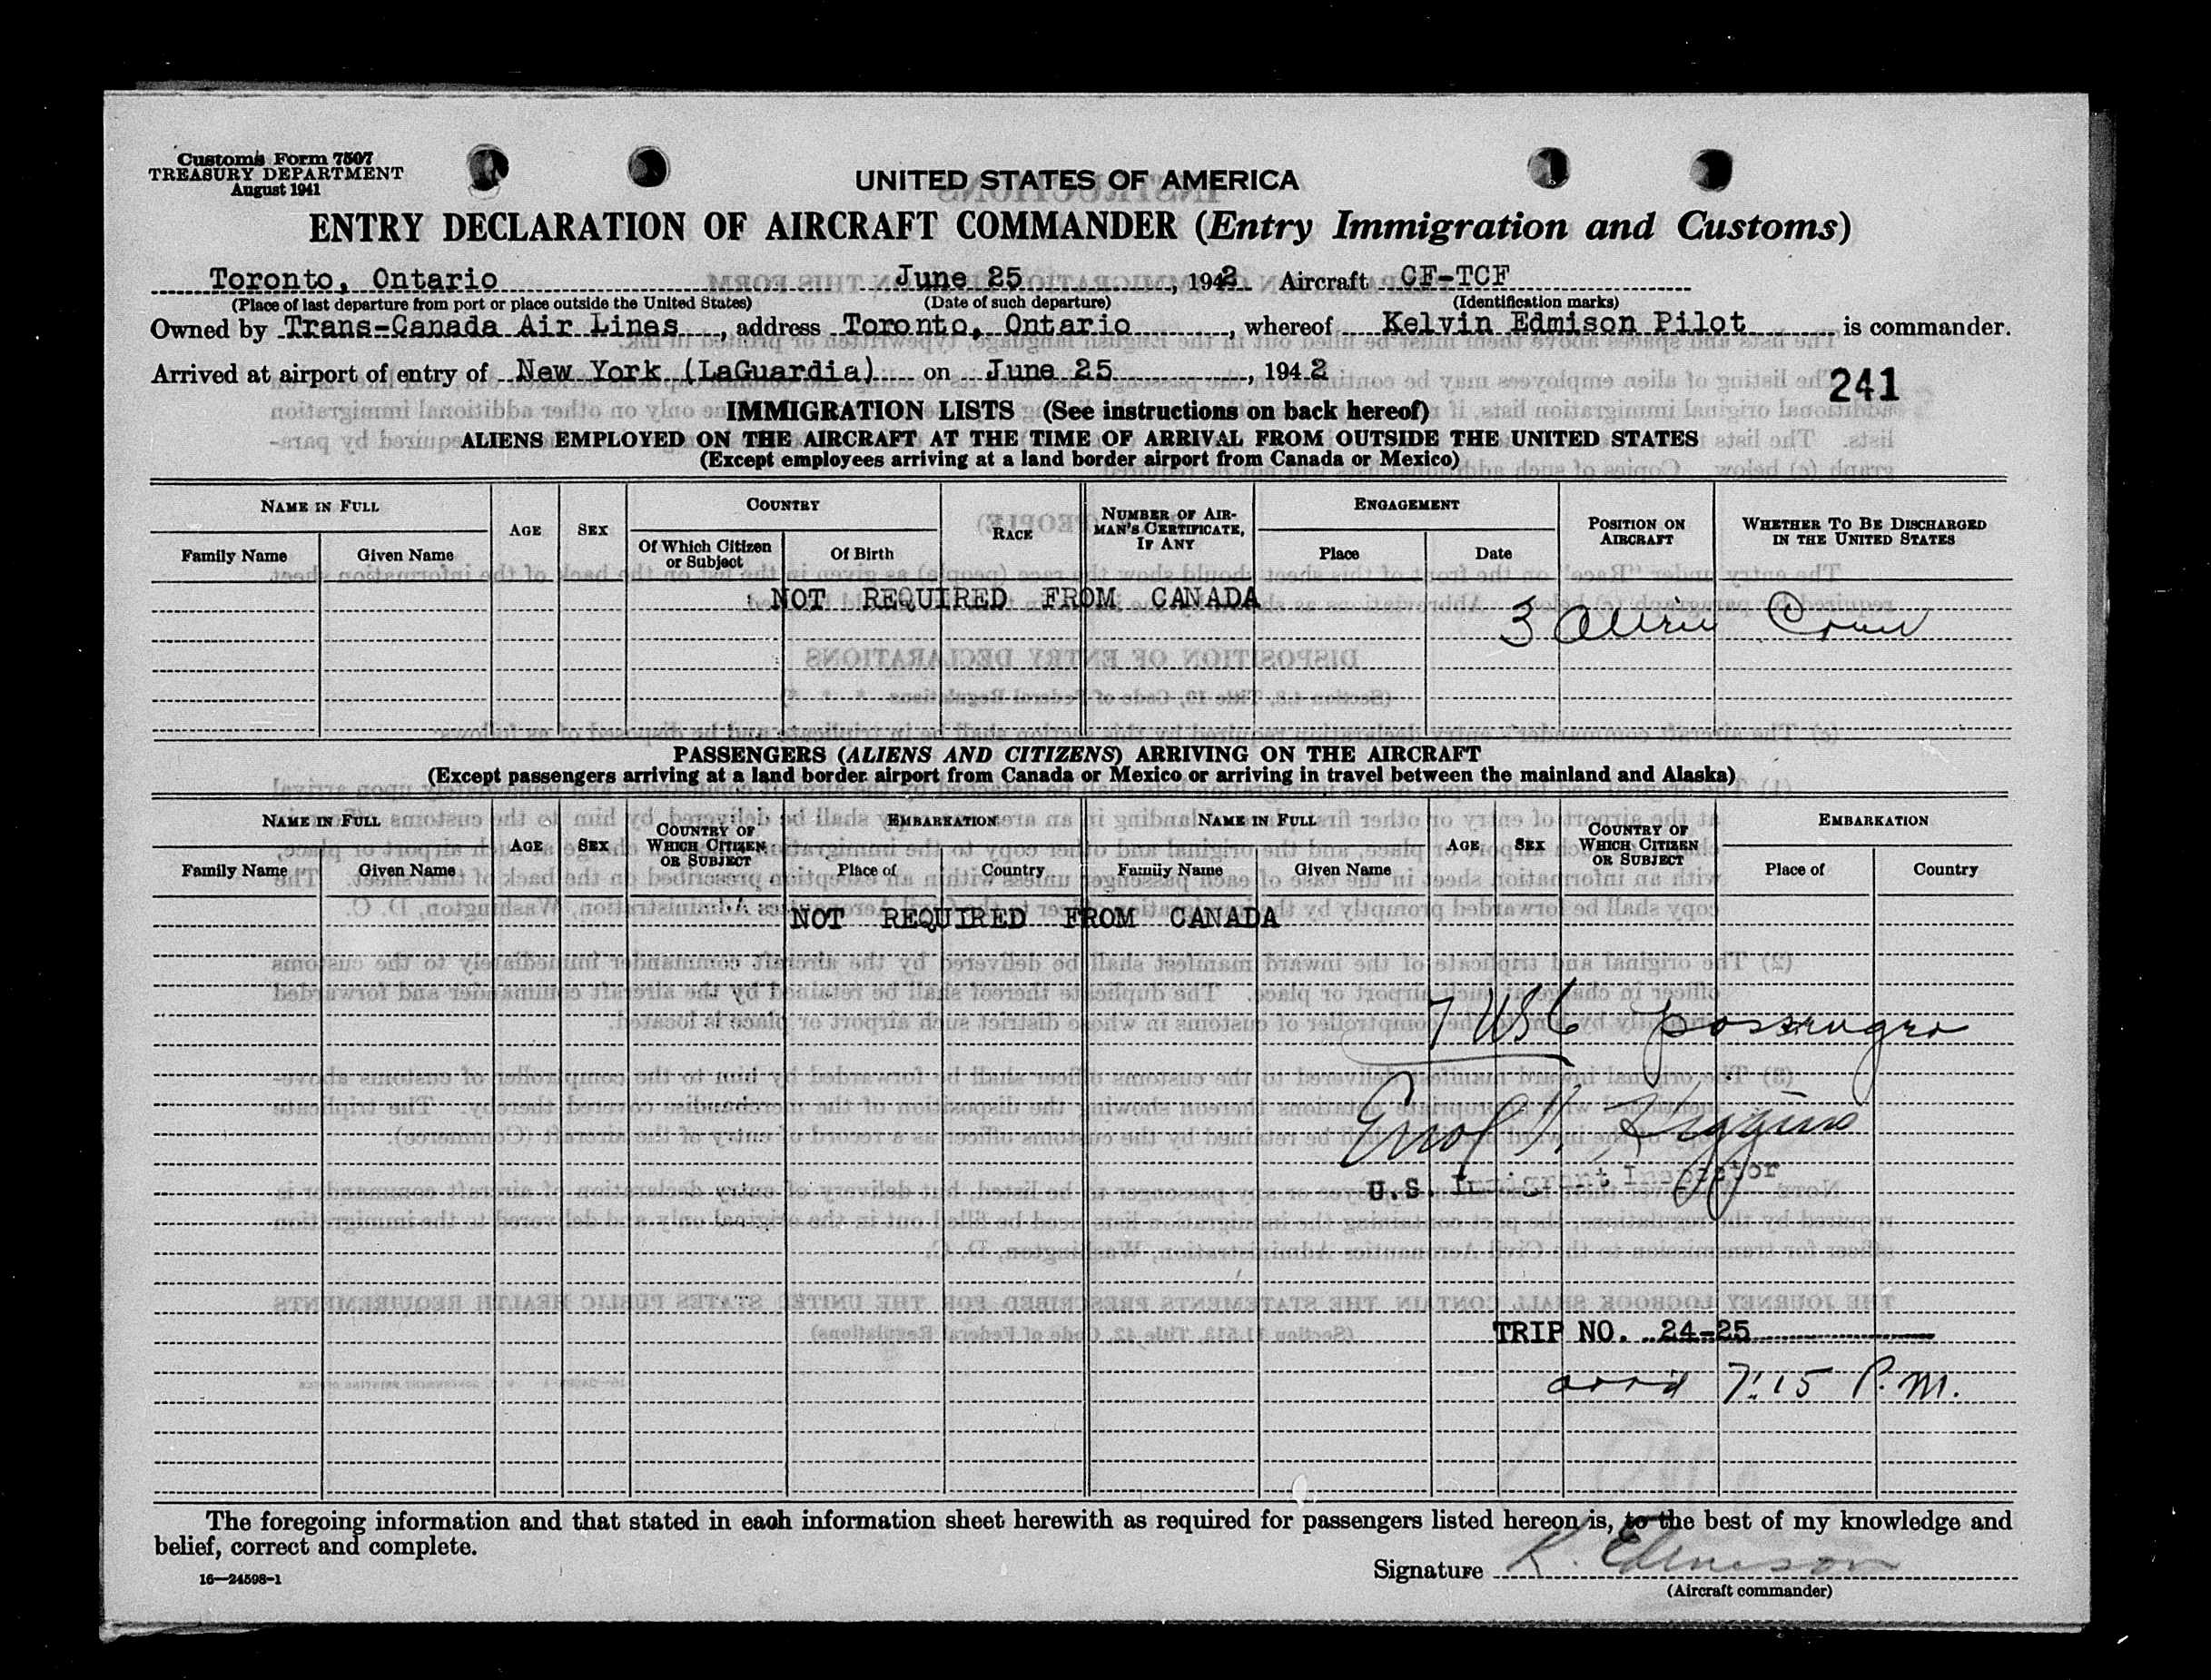 Customs Form 7507
TREASURY DEPARTMENT
August 1941
UNITED STATES OF AMERICA
ENTRY DECLARATION OF AIRCRAFT COMMANDER (Entry Immigration and Customs)
Toronto, Ontario June 25, 1942 Aircraft CF-TCF
(Place of last departure from port or place outside the United States) (Date of such departure) (Identification marks)
Owned by Trans-Canada Air Lines, address Toronto, Ontario, whereof Kelvin Edmison Pilot is commander.
Arrived at airport of entry of New York (LaGuardia) on June 25, 1942
241
IMMIGRATION LISTS (See instructions on back hereof)
ALIENS EMPLOYED ON THE AIRCRAFT AT THE TIME OF ARRIVAL FROM OUTSIDE THE UNITED STATES
(Except employees arriving at a land border airport from Canada or Mexico)
NAME IN FULL AGE SEX COUNTRY RACE NUMBER OF AIRMAN'S CERTIFICATE, IF ANY ENGAGEMENT POSITION ON AIRCRAFT WHETHER TO BE DISCHARGED IN THE UNITED STATES
Family Name Given Name Of Which Citizen or Subject Of Birth Place Date
NOT REQUIRED FROM CANADA
3 Alien Crew
PASSENGERS (ALIENS AND CITIZENS) ARRIVING ON THE AIRCRAFT
(Except passengers arriving at a land border airport from Canada or Mexico or arriving in travel between the mainland and Alaska)
NAME IN FULL AGE SEX COUNTRY OF WHICH CITIZEN OR SUBJECT EMBARKATION NAME IN FULL AGE SEX COUNTRY OF WHICH CITIZEN OR SUBJECT EMBARKATION
Family Name Given Name Place of Country Family Name Given Name Place of Country
NOT REQUIRED FROM CANADA
7 USC passengers
Errol Higgins
U.S. Immigrant Inspector
TRIP NO. 24-25
arr'd 7:15 P.M.
The foregoing information and that stated in each information sheet herewith as required for passengers listed hereon is, to the best of my knowledge and
belief, correct and complete.
Signature K. Edmison
16—24598-1
(Aircraft commander)